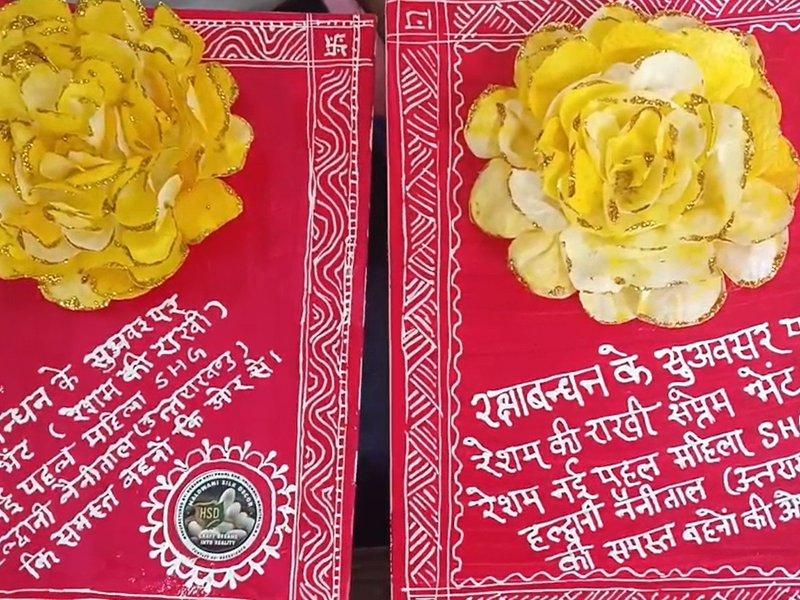 न्धन के सुअवसर पर
भेंट (रेशम की राखी)
नई पहल महिला SHG
ल्द्वानी नैनीताल (उत्तराखण्ड)
कि समस्त बहनों कि ओर से।
HALDWANI SILK DECOR
HSD
CRAFT DREAMS
INTO REALITY
रक्षाबन्धन के सुअवसर प
रेशम की राखी सप्रेम भेंट
रेशम नई पहल महिला SHG
हल्द्वानी नैनीताल (उत्तराख
की समस्त बहनों की ओ